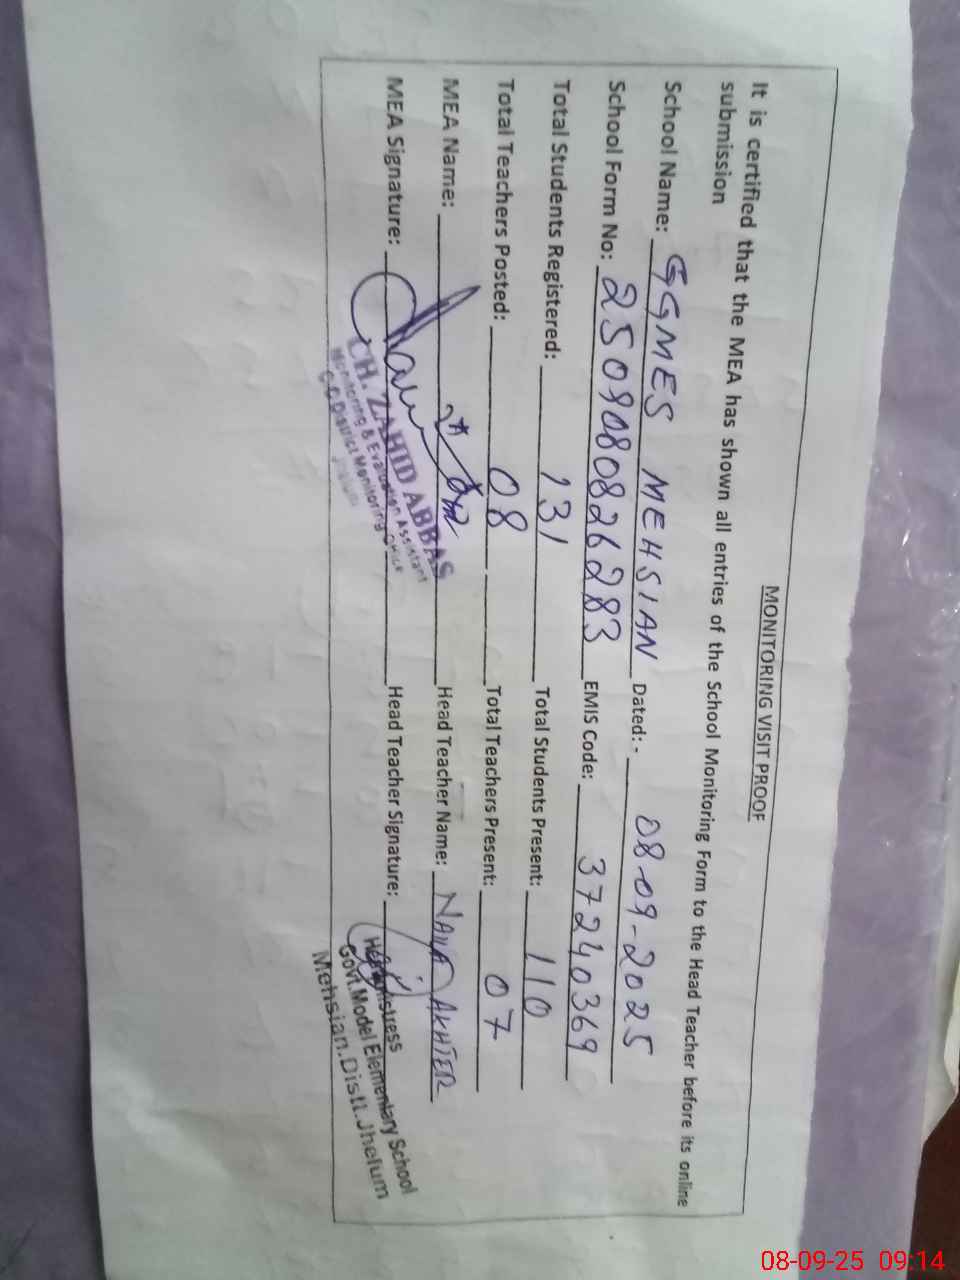 MONITORING VISIT PROOF
It is certified that the MEA has shown all entries of the School Monitoring Form to the Head Teacher before its online
submission
School Name: GGMES MEHSIAN Dated:- 08-09-2025
School Form No: 2509080826283 EMIS Code: 37240369
Total Students Registered: 131 Total Students Present: 110
Total Teachers Posted: 08 Total Teachers Present: 07
MEA Name: Head Teacher Name: AKHTER
MEA Signature: Head Teacher Signature:
CH. ZAHID ABBAS
Monitoring & Evaluation Assistant
District Monitoring Office
Headmistress
Govt.Model Elementary School
Mehsian.Distt.Jhelum
08-09-25 09:14